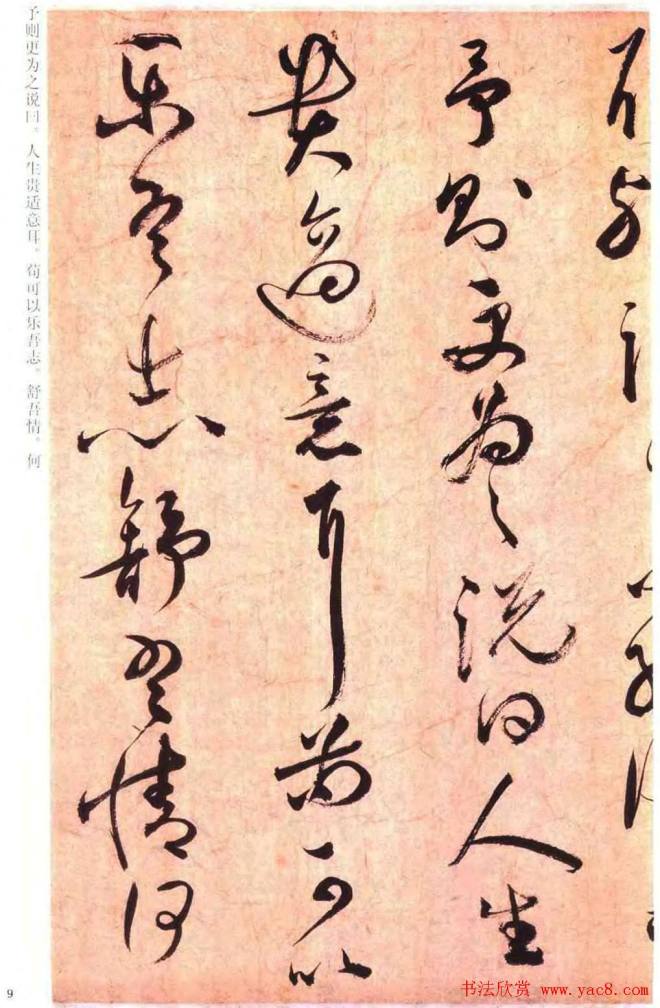 予则更为之说曰人生
贵适意耳苟可以
乐吾志舒吾情何
予则更为之说曰。人生贵适意耳。苟可以乐吾志。舒吾情。何
9
书法欣赏 www.yac8.com